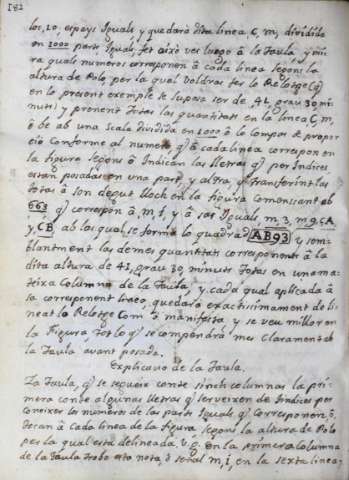 182
los, 20, espays Iguals, y quedarà dita linea C, m, dividida
en 1000 parts Iguals, fet això ver luego à la Taula, y mi-
ra quals numeros corresponen à cada linea segons la
altura de Polo, per la qual voldras fer lo Relotge (q
en lo present exemple se supose ser de 41 grau 30 mi-
nuts) y prenent totas las quantitats en la linea C, m,
ô be ab una scala dividida en 1000 ô lo compas de propor
ciô conforme al numero, q à cada linea correspon en
la figura segons ô Indican las lletras q per Indices
estan posadas en una part, y altra, y transferint las
totas à son degut lloch en la figura comensant ab
663 q correspon à m, i, y à sos Iguals m, 3, m 9, CA
y, CB ab los quals se forma lo quadrad AB93 y sem-
blantment las demes quantitats corresponents à la
dita altura de 41, grau 30, minuts totas en una ma-
teixa Columna de la Taula, y cada qual aplicada à
sa corresponent linea, quedarà exactissimament de li-
neat lo Relotge Com ô manifesta, y se veu millor en
la Figura, tot lo q se compendrà mes Clarament ab
la Taula avant posada.
Explicacio de la Taula.
La Taula, q se segueix conte sinch columnas la pri-
mera conte algunas lletras q serveixen de Indices per
coneixer los numeros de las parts Iguals q Corresponen, ô,
tocan à cada linea de la figura segons la altura de Polo
per la qual està delineada, v. g. en la primera Columna
de la Taula trobo esta nota, ô señal m, i, en la sexta linea